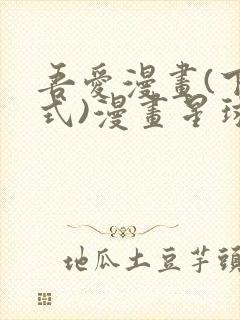 吾愛漫畫(下
式)漫畫星球
地瓜土豆芋頭